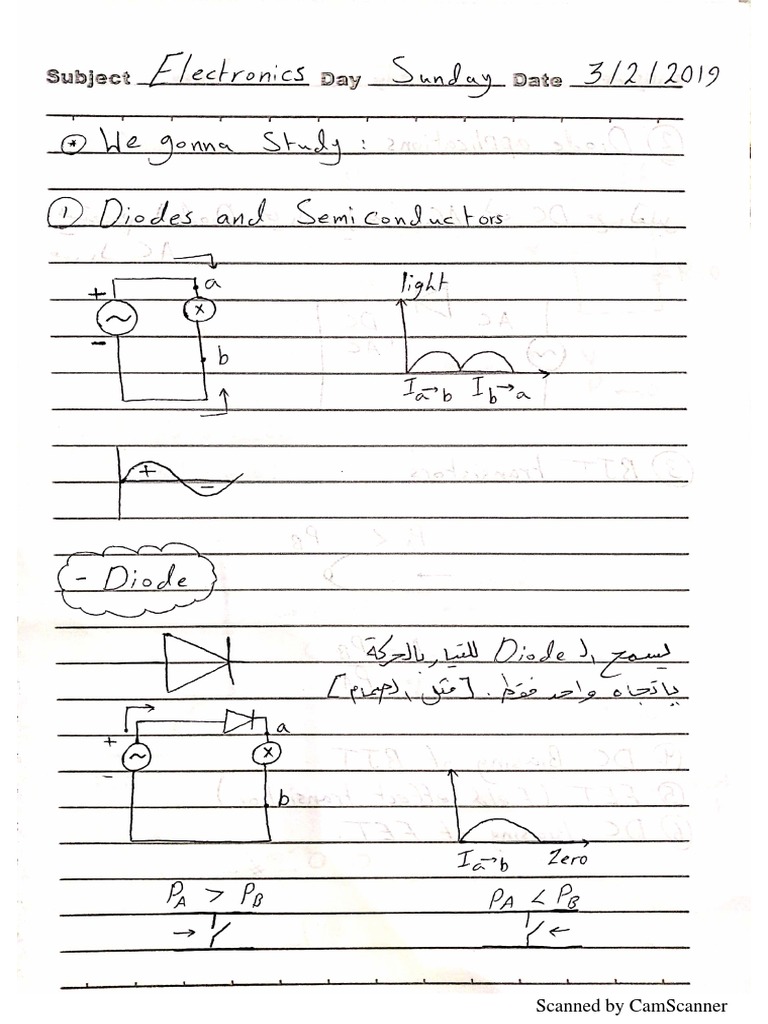 Subject Electronics Day Sunday Date 3/2/2019
* We gonna Study :
1 Diodes and Semiconductors
+ a
light
~ x
- b
I a→b I b→a
+ -
- Diode
يسمح الـ Diode للتيار بالحركة
باتجاه واحد فقط. [مثل الصمام]
+ a
~ x
- b
I a→b Zero
PA > PB PA < PB
Scanned by CamScanner